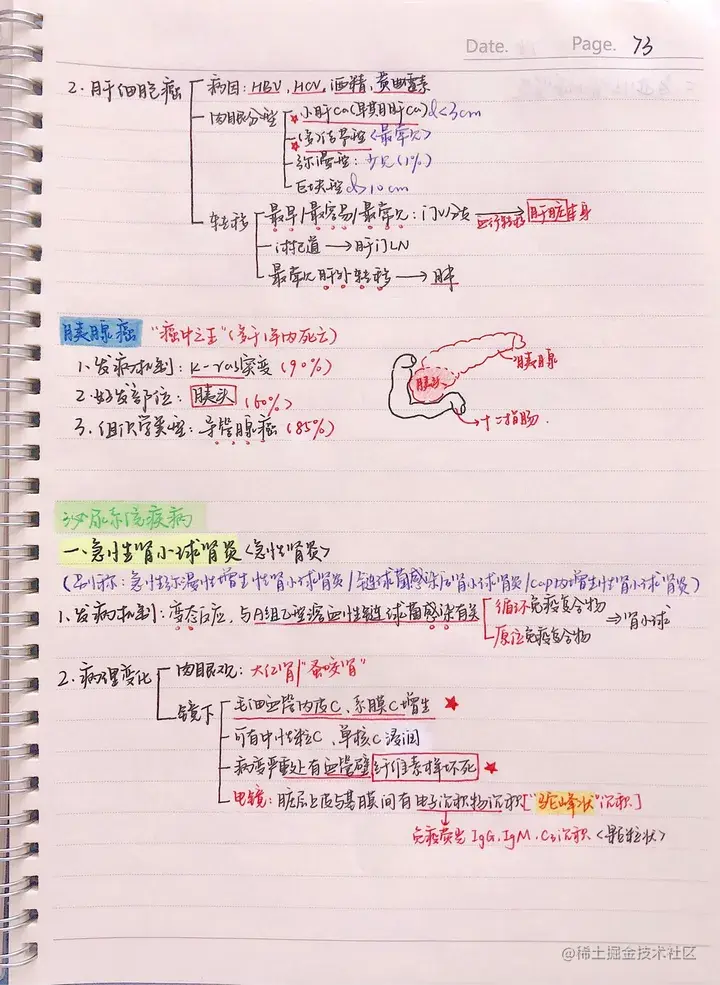 Date. Page. 73
2. 肝细胞癌 病因: HBV, HCV, 酒精, 黄曲霉素
肉眼分型 ★小肝Ca(早期肝Ca) d<3cm
★(多)结节型<最常见>
弥漫型: 少见(1%)
巨块型 d>10cm
转移 最早/最容易/最常见: 门V分支 血行转移 肝脏本身
淋巴道→肝门LN
最常见肝外转移→肺
胰腺癌 "癌中之王"(多于1年内死亡)
1. 发病机制: K-ras突变(90%)
2. 好发部位: 胰头(60%)
3. 组织学类型: 导管腺癌(85%)
胰头 胰腺
十二指肠.
泌尿系统疾病
一、急性肾小球肾炎<急性肾炎>
(别称: 急性弥漫性增生性肾小球肾炎/链球菌感染后肾小球肾炎/cap内增生性肾小球肾炎)
1. 发病机制: 变态反应, 与A组乙型溶血性链球菌感染有关 循环免疫复合物 ⇒肾小球
原位免疫复合物
2. 病理变化 肉眼观: 大红肾/"蚤咬肾"
镜下 毛细血管内皮C、系膜C增生 ★
可有中性粒C、单核C浸润
病变严重处有血管壁纤维素样坏死 ★
电镜: 脏层上皮与基膜间有电子沉积物沉积["驼峰状"沉积]
免疫荧光 IgG. IgM. C3沉积<颗粒状>
@稀土掘金技术社区